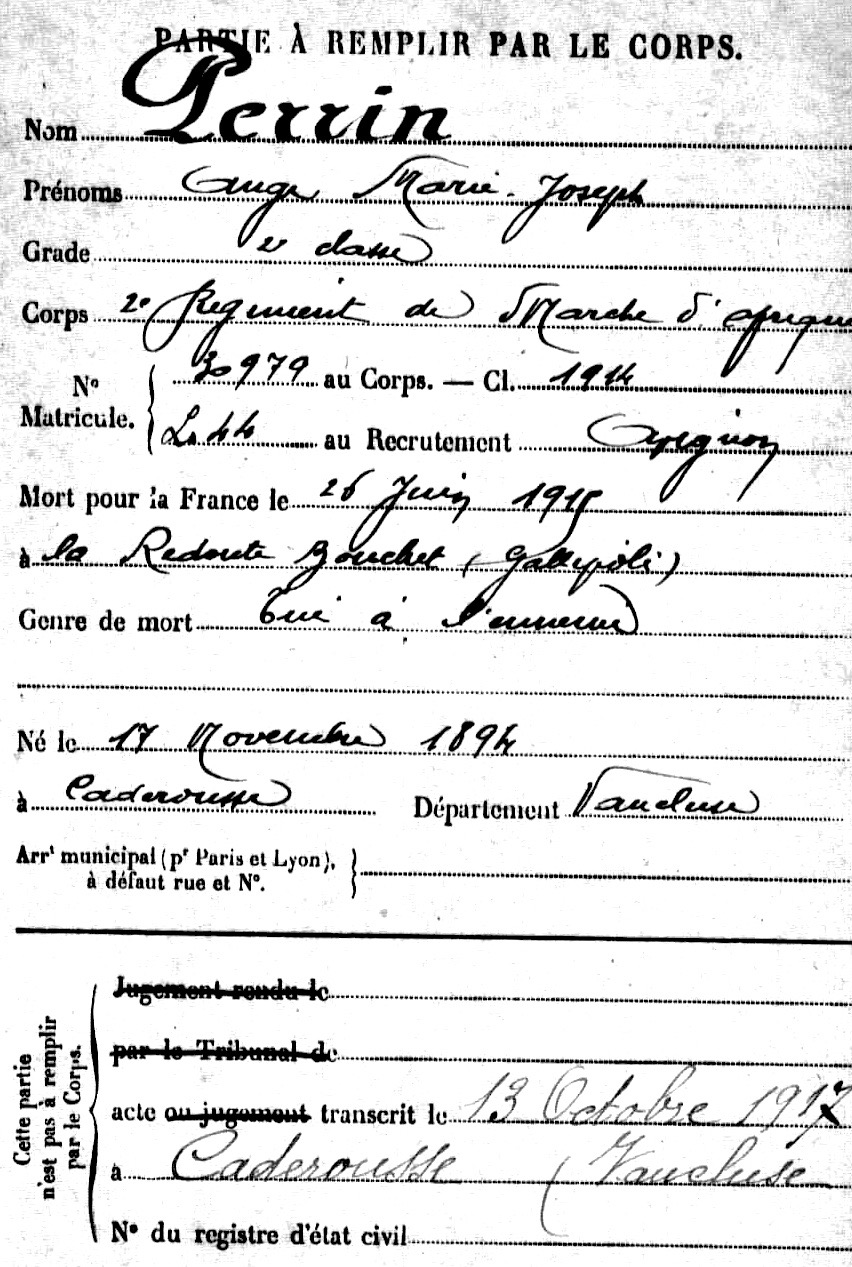 PARTIE À REMPLIR PAR LE CORPS.
Nom Perrin
Prénoms Ange Marie-Joseph
Grade 2e classe
Corps 2e Régiment de Marche d'afrique
N° Matricule. 30979 au Corps. — Cl. 1914
44 au Recrutement Avignon
Mort pour la France le 26 Juin 1915
à la Redoute Bouchet (Gallipoli)
Genre de mort Tué à l'ennemi
Né le 17 Novembre 1894
à Caderousse Département Vaucluse
Arrt municipal (pr Paris et Lyon),
à défaut rue et N°.
Cette partie n'est pas à remplir par le Corps.
Jugement rendu le
par le Tribunal de
acte ou jugement transcrit le 13 Octobre 1917
à Caderousse (Vaucluse
N° du registre d'état civil